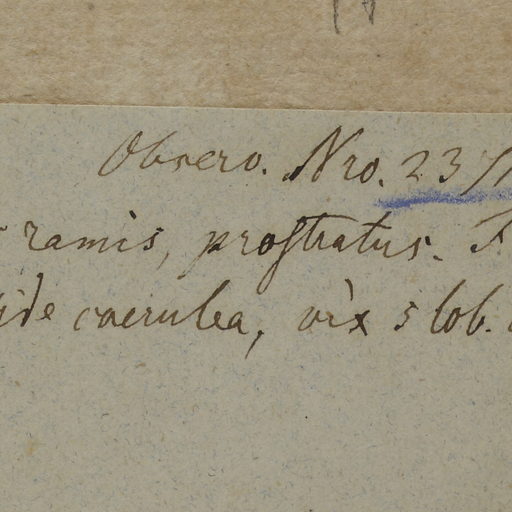 Observ. Nro. 237
ramis, prostratus. F
ide caerulea, vix 5 lob.